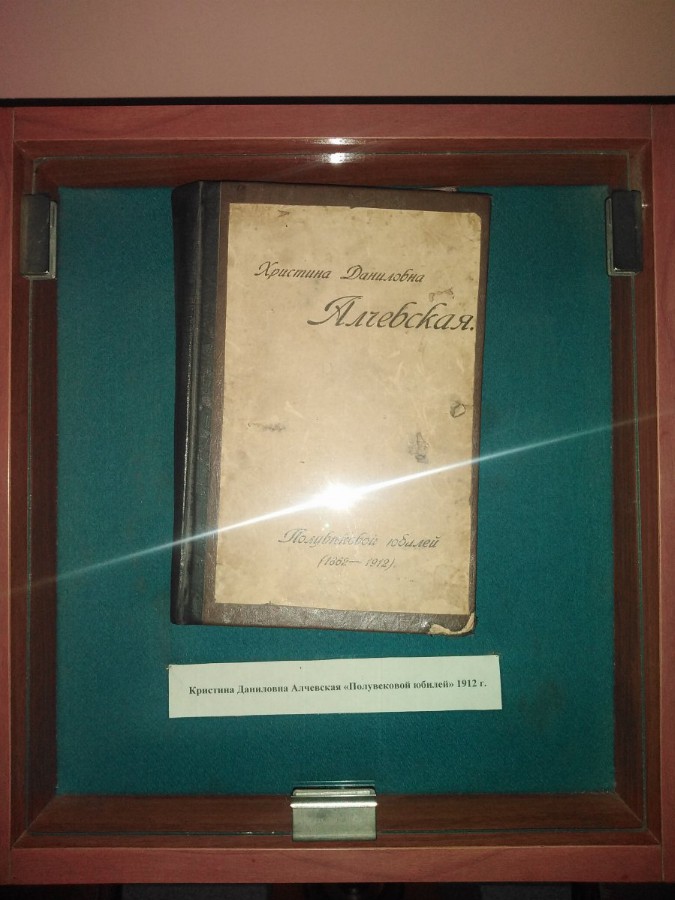 Христина Даниловна
Алчевская.
Полувѣковой юбилей
(1862 — 1912).
Кристина Даниловна Алчевская «Полувековой юбилей» 1912 г.